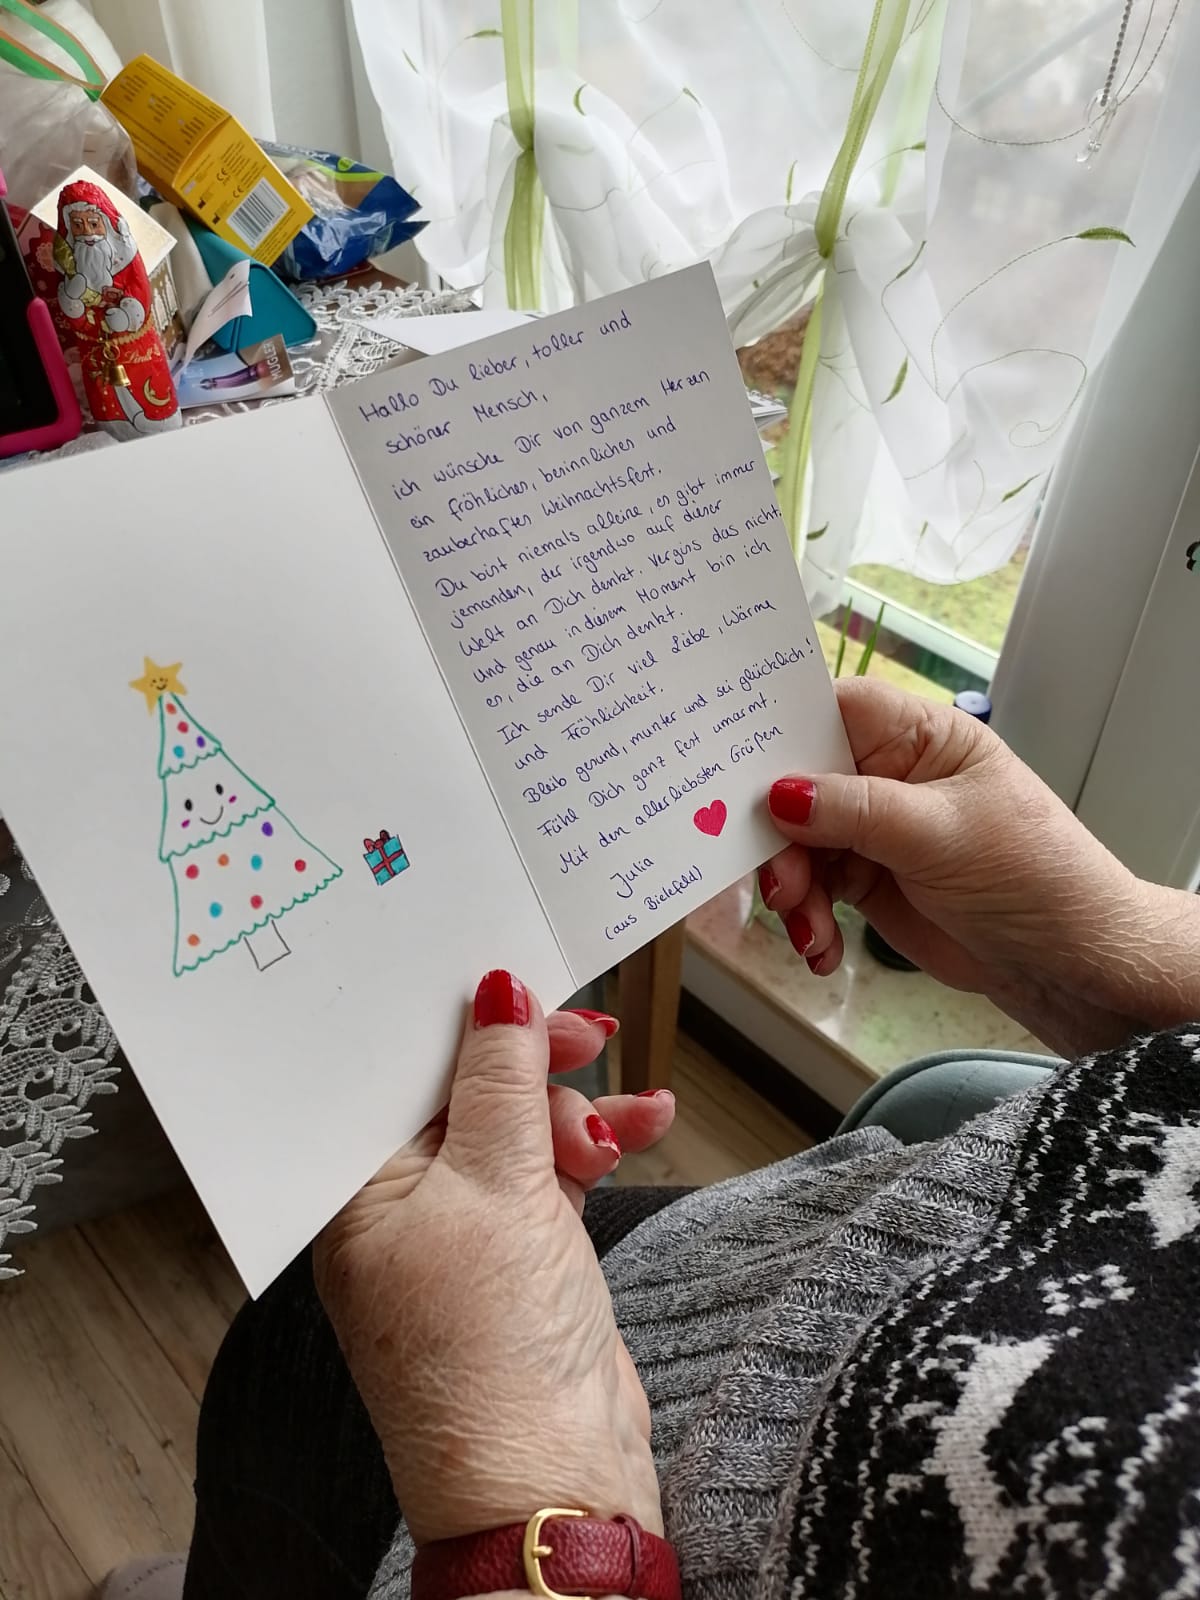 Hallo Du lieber, toller und
schöner Mensch,
ich wünsche Dir von ganzem Herzen
ein fröhliches, besinnliches und
zauberhaftes Weihnachtsfest.
Du bist niemals alleine, es gibt immer
jemanden, der irgendwo auf dieser
Welt an Dich denkt. Vergiss das nicht.
Und genau in diesem Moment bin ich
es, die an Dich denkt.
Ich sende Dir viel Liebe, Wärme
und Fröhlichkeit.
Bleib gesund, munter und sei glücklich!
Fühl Dich ganz fest umarmt.
Mit den allerliebsten Grüßen
Julia
(aus Bielefeld)
Lindt
MUGLER